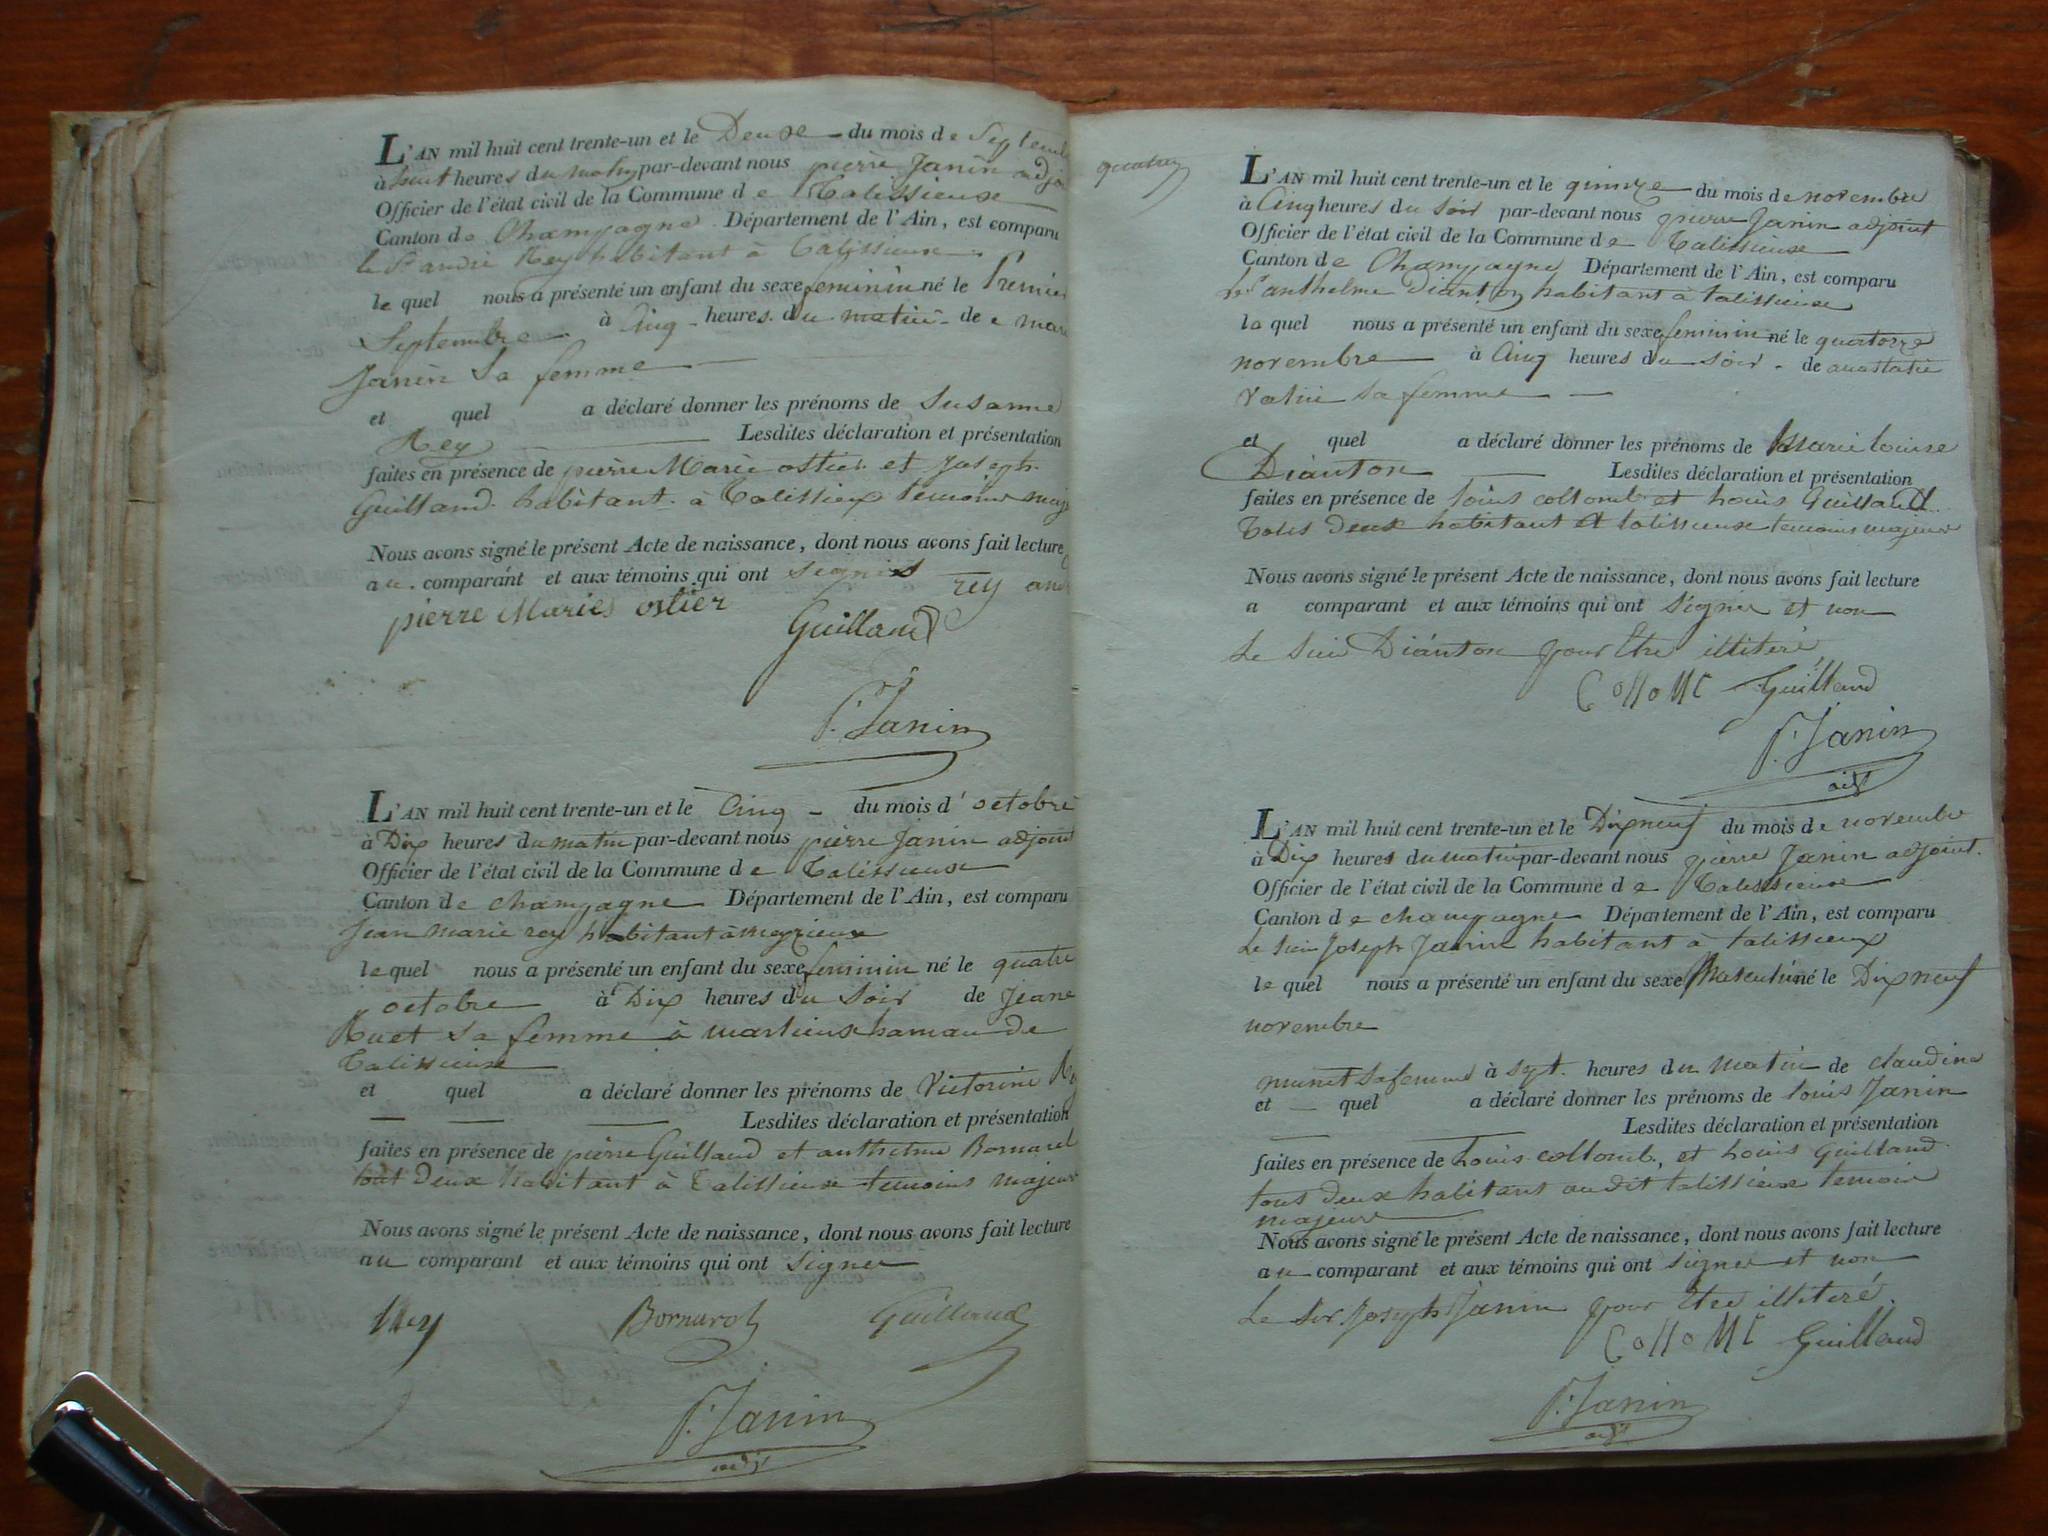 L'AN mil huit cent trente-un et le Deuxe du mois de Septemb
à huit heures du matin par-devant nous pierre Janin adjoi
Officier de l'état civil de la Commune de Talissieux
Canton de Champagne Département de l'Ain, est comparu
le Sr andré Rey habitant à Talissieux
le quel nous a présenté un enfant du sexe feminin né le Premier
Septembre à Cinq heures du matin de mari
Janin Sa femme
et quel a déclaré donner les prénoms de Susanne
Rey Lesdites déclaration et présentation
faites en présence de pierre Marie ostier et Joseph
Guilland habitant à Talissieux temoins maj
Nous avons signé le présent Acte de naissance, dont nous avons fait lecture
au comparant et aux témoins qui ont signés
rey and
pierre Maries ostier
Guilland
P. Janin
L'AN mil huit cent trente-un et le Cinq du mois d'octobre
à Dix heures du matin par-devant nous pierre Janin adjoint
Officier de l'état civil de la Commune de Talissieux
Canton de champagne Département de l'Ain, est comparu
Jean marie rey habitant à meyrieux
le quel nous a présenté un enfant du sexe feminin né le quatre
octobre à Dix heures du Soir de Jeane
Ruet sa femme à marlieux hamau de
Talissieux
et quel a déclaré donner les prénoms de Victorine Rey
Lesdites déclaration et présentation
faites en présence de pierre Guilland et anthelme Bornarel
tout Deux habitant à Talissieux temoins majeur
Nous avons signé le présent Acte de naissance, dont nous avons fait lecture
au comparant et aux témoins qui ont signer
Rey Bornarel Guilland
P. Janin
adj
L'AN mil huit cent trente-un et le quinze du mois de novembre
à Cinq heures du Soir par-devant nous pierre Janin adjoint
Officier de l'état civil de la Commune de Talissieux
Canton de Champagne Département de l'Ain, est comparu
le Sr anthelme Dianton habitant à talissieux
le quel nous a présenté un enfant du sexe feminin né le quatorze
novembre à Cinq heures du Soir de anastasie
sa femme
et quel a déclaré donner les prénoms de Marie louise
Dianton Lesdites déclaration et présentation
faites en présence de louis collomb et louis Guilland
tous deux habitant à talissieux temoins majeur
Nous avons signé le présent Acte de naissance, dont nous avons fait lecture
a comparant et aux témoins qui ont signer et non
Le Sieur Dianton pour Etre illiteré
Collomb Guilland
P. Janin
adj
L'AN mil huit cent trente-un et le Dix neuf du mois de novembre
à Dix heures du matin par-devant nous pierre Janin adjoint
Officier de l'état civil de la Commune de Talissieux
Canton de champagne Département de l'Ain, est comparu
Le Sieur Joseph Janin habitant à talissieux
le quel nous a présenté un enfant du sexe Masculin né le Dix neuf
novembre
munet sa femme à sept heures du matin de claudine
et quel a déclaré donner les prénoms de louis Janin
Lesdites déclaration et présentation
faites en présence de louis collomb, et louis Guilland
tous deux habitant audit talissieux temoin
majeure
Nous avons signé le présent Acte de naissance, dont nous avons fait lecture
au comparant et aux témoins qui ont signer et non
Le Sr Joseph Janin pour Etre illiteré
Collomb Guilland
P. Janin
adj